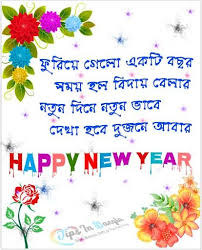 ফুরিয়ে গেলো একটি বছর
সময় হল বিদায় বেলার
নতুন দিনে নতুন ভাবে
দেখা হবে দুজনে আবার
HAPPY NEW YEAR
Tips In Bangla